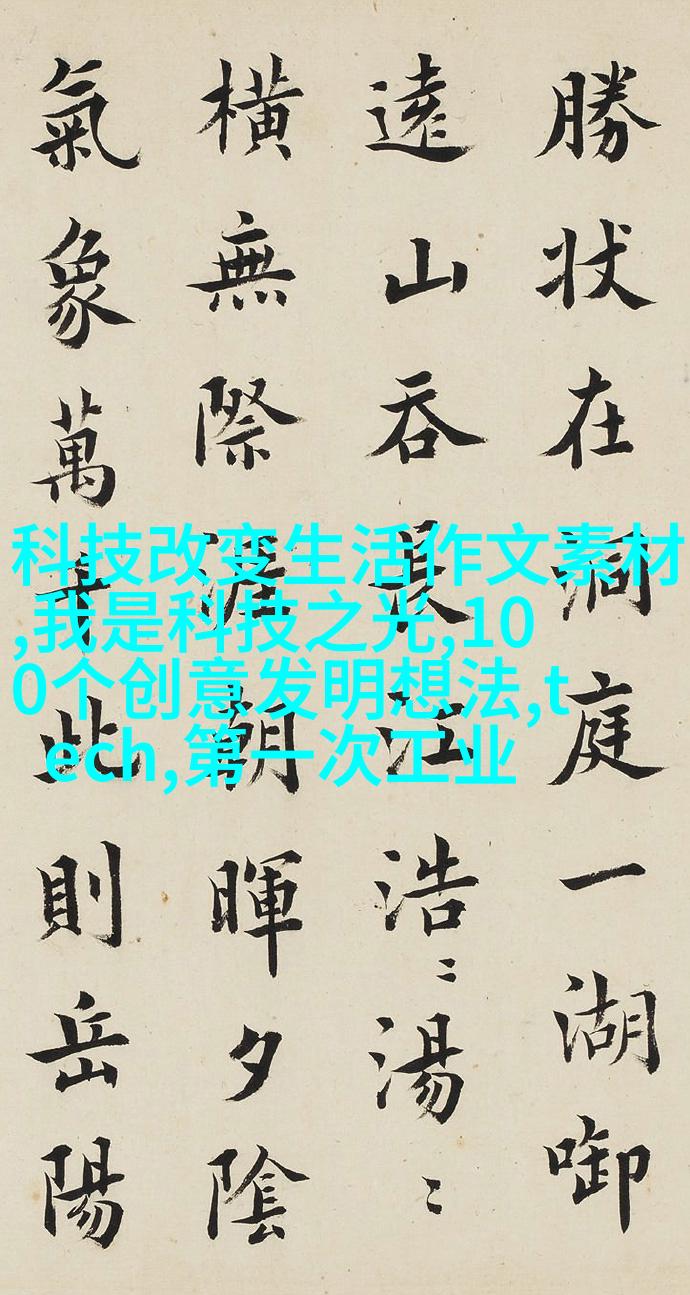 勝状在洞庭一湖啣
遠山吞長江浩〻湯〻
橫無際涯朝暉夕陰
氣象萬千此則岳陽
科技改变生活作文素材
,我是科技之光,10
0个创意发明想法,t
ech,第一次工业